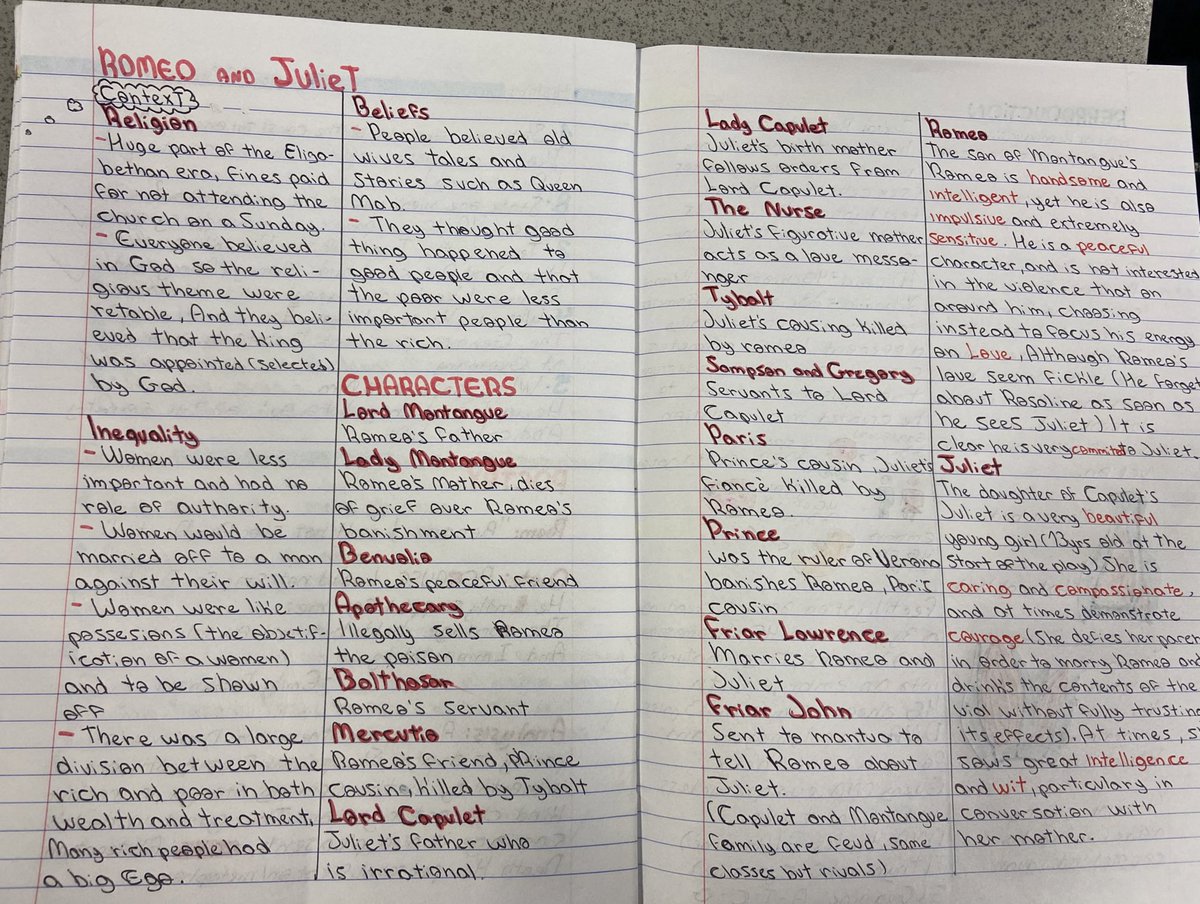 ROMEO AND JULIET
Context
Religion
- Huge part of the Eliga-
bethan era, fines paid
for not attending the
church on a Sunday.
- Everyone believed
in God so the reli-
gious theme were
retable, And they beli-
eved that the king
was appointed (selected)
by God.
Inequality
- Women were less
important and had no
role of authority.
- Women would be
married off to a man
against their will.
- Women were like
possesions (the objetif-
ication of a women)
and to be shown
off
- There was a large
division between the
rich and poor in both
wealth and treatment.
Many rich people had
a big Ego.
Beliefs
- People believed old
wives tales and
stories such as Queen
Mab.
- They thought good
thing happened to
good people and that
the poor were less
important people than
the rich.
CHARACTERS
Lord Montangue
Romeo's father
Lady Montangue
Romeo's Mother, dies
of grief over Romeo's
banishment
Benvolio
Romeo's peaceful friend
Apothecary
Illegally sells Romeo
the poison
Balthasar
Romeo's servant
Mercutio
Romeo's friend, Prince
cousin, killed by Tybalt
Lord Capulet
Juliet's father who
is irrational.
Lady Capulet
Juliet's birth mother
follows orders from
Lord Capulet.
The Nurse
Juliet's figurative mother
acts as a love messe-
nger
Tybalt
Juliet's cousing killed
by romeo
Sampson and Gregory
Servants to Lord
Capulet
Paris
Prince's cousin, Juliet's
fiancè killed by
Romeo.
Prince
was the ruler of Verona
banishes Romeo, Paris
cousin
Friar Lowrence
Marries Romeo and
Juliet
Friar John
Sent to mantua to
tell Romeo about
Juliet.
(Capulet and Montangue
family are feud, same
classes but rivals)
Romeo
The son of Montangue's
Romeo is handsome and
intelligent, yet he is also
impulsive and extremely
sensitive. He is a peaceful
character, and is not interested
in the violence that on
around him, choosing
instead to focus his energy
on Love, Although Romeo's
love seem fickle (He forget
about Rosaline as soon as
he sees Juliet) It is
clear he is very commited to Juliet.
Juliet
The daughter of Capulet's
Juliet is a very beautiful
young girl (13yrs old at the
start of the play) She is
caring and compassionate,
and at times demonstrate
courage (She defies her paren
in order to marry Romeo and
drinks the contents of the
vial without fully trusting
its effects). At times, s
sows great intelligence
and wit, particulary in
conversation with
her mother.